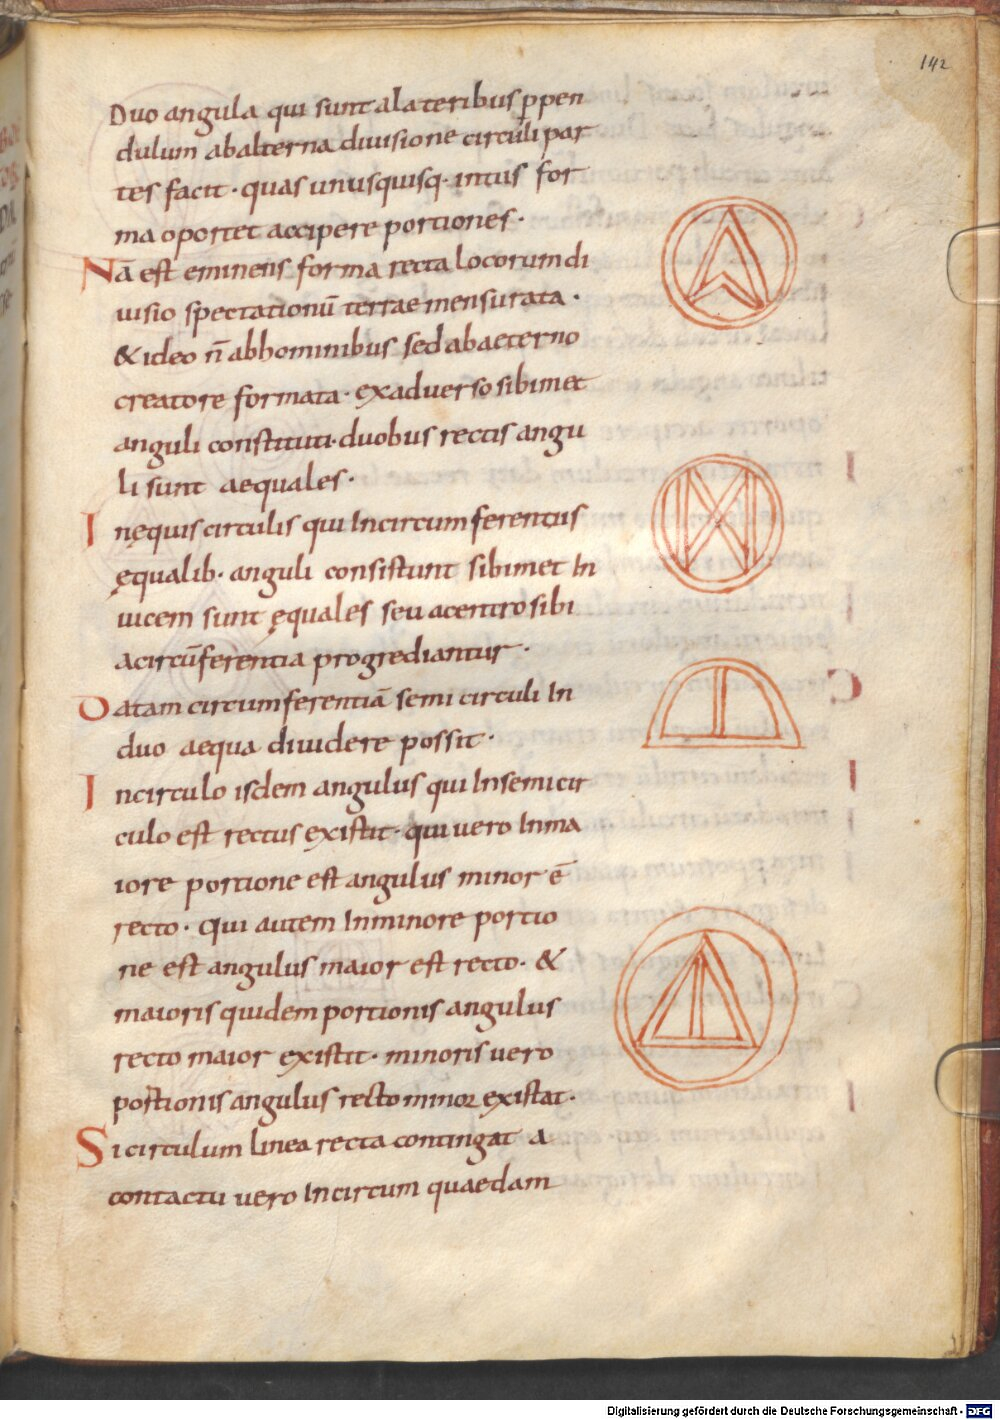 142
Duo angula qui sunt alateribus ꝑpen
dulum abalterna diuisione circuli par
tes facit · quas unusquisq· intus for
ma oportet accipere portiones ·
Nā est eminens forma recta locorum di
uisio spectationū terrae mensurata ·
& ideo n̄ abhominibus sed abaeterno
creatore formata · exaduerso sibimet
anguli constituti · duobus rectis angu
li sunt aequales ·
Inęquis circulis qui Incircumferentiis
ęqualib· anguli consistunt sibimet In
uicem sunt ęquales seu acentro sibi
acircūferentia progrediantur ·
Datam circumferentiā semi circuli In
duo aequa diuidere possit ·
Incirculo isdem angulus qui Insemicir
culo est rectus existit · qui uero Inma
iore portione est angulus minor ē
recto · qui autem Inminore portio
ne est angulus maior est recto · &
maioris quidem portionis angulus
recto maior existit · minoris uero
postionis angulus recto minor existat ·
Si circulum linea recta contingat a
contactu uero Incircum quaedam
Digitalisierung gefördert durch die Deutsche Forschungsgemeinschaft - DFG